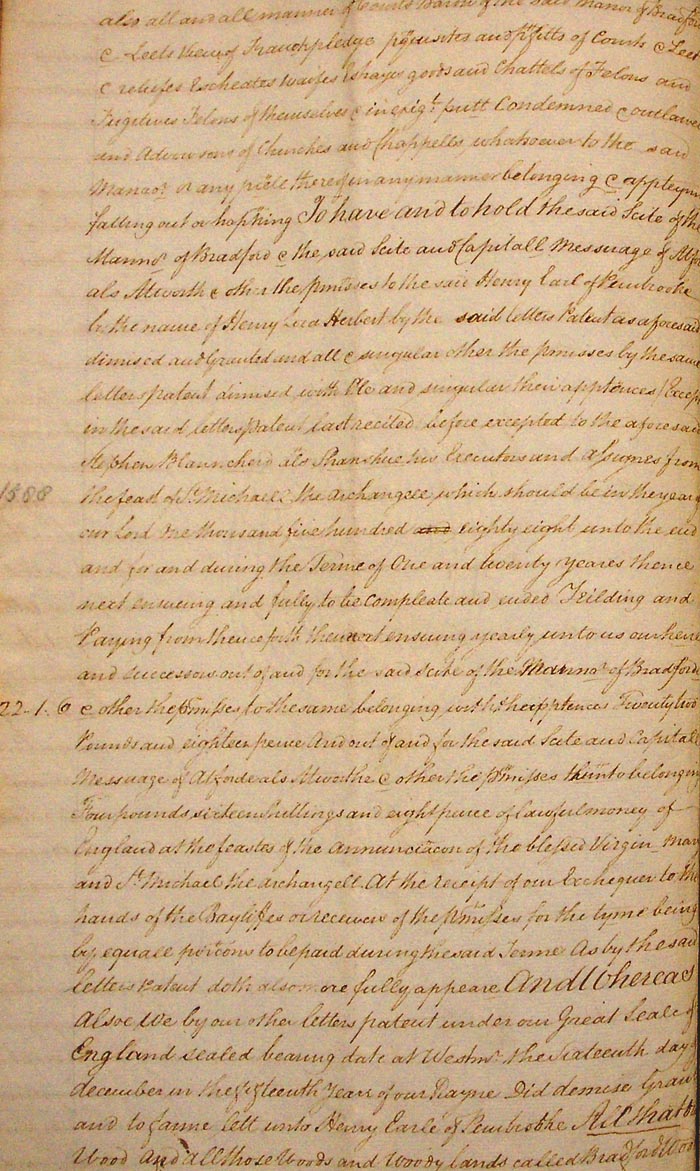 also all and all manner of Courts Baron of the said Manor of Bradford
& Leets view of Franckpledge pquisites and pfitts of Courts & Leet
& reliefes Escheates waifes Estrayes goods and Chattels of Felons and
Fugitives Felons of themselves & in exigt putt Condemned & outlawed
and Advowsons of Churches and Chappells whatsoever to the said
Manor or any pcell thereof in any manner belonging & appteyn
falling out or happning To have and to hold the said Scite of the
Mannor of Bradford & the said Scite and Capitall Messuage of Atford
als Atworth & other the pmisses to the said Henry Earl of Pembrooke
by the name of Henry Lord Herbert by the said letters Patent as aforesaid
dimised and Granted and all & singular other the pmisses by the same
letters patent dimised with all and singular their apptences (Except
in the said letters patent last recited before excepted to the aforesaid
Stephen Blanncherd als Shanshue his Executors and assignes from
the feast of St Michaell the Archangell which should be in the year of
1588
our Lord One thousand five hundred and eighty eight unto the end
and for and during the Terme of One and twenty yeares thence
next ensueing and fully to be Compleate and ended Yeilding and
Paying from thenceforth then next ensuing yearly unto us our heires
and successors out of and for the said Scite of the Mannor of Bradforde
22-1-6 & other the pmisses to the same belonging with the apptences Twenty two
Pounds and eighteen pence And out of and for the said Scite and Capitall
Messuage of Atforde als Atworthe & other the pmisses thereunto belonging
Four pounds sixteen shillings and eight pence of lawful money of
England at the feastes of the Annunciacon of the blessed Virgin Mary
and St Michael the archangell At the receipt of our Exchequer to the
hands of the Bayliffes or receivers of the pmisses for the tyme being
by equall porcons to be paid during the said Terme As by the said
letters Patent doth also more fully appeare And Whereas
Alsoe We by our other letters patent under our Great Seale of
England sealed bearing date at Westmr the Sixteenth day of
december in the fifteenth Year of our Rayne Did demise Graunt
and to farme lett unto Henry Earle of Pembrooke All that
Wood and all those Woods and Woody lands called Bradford Wood